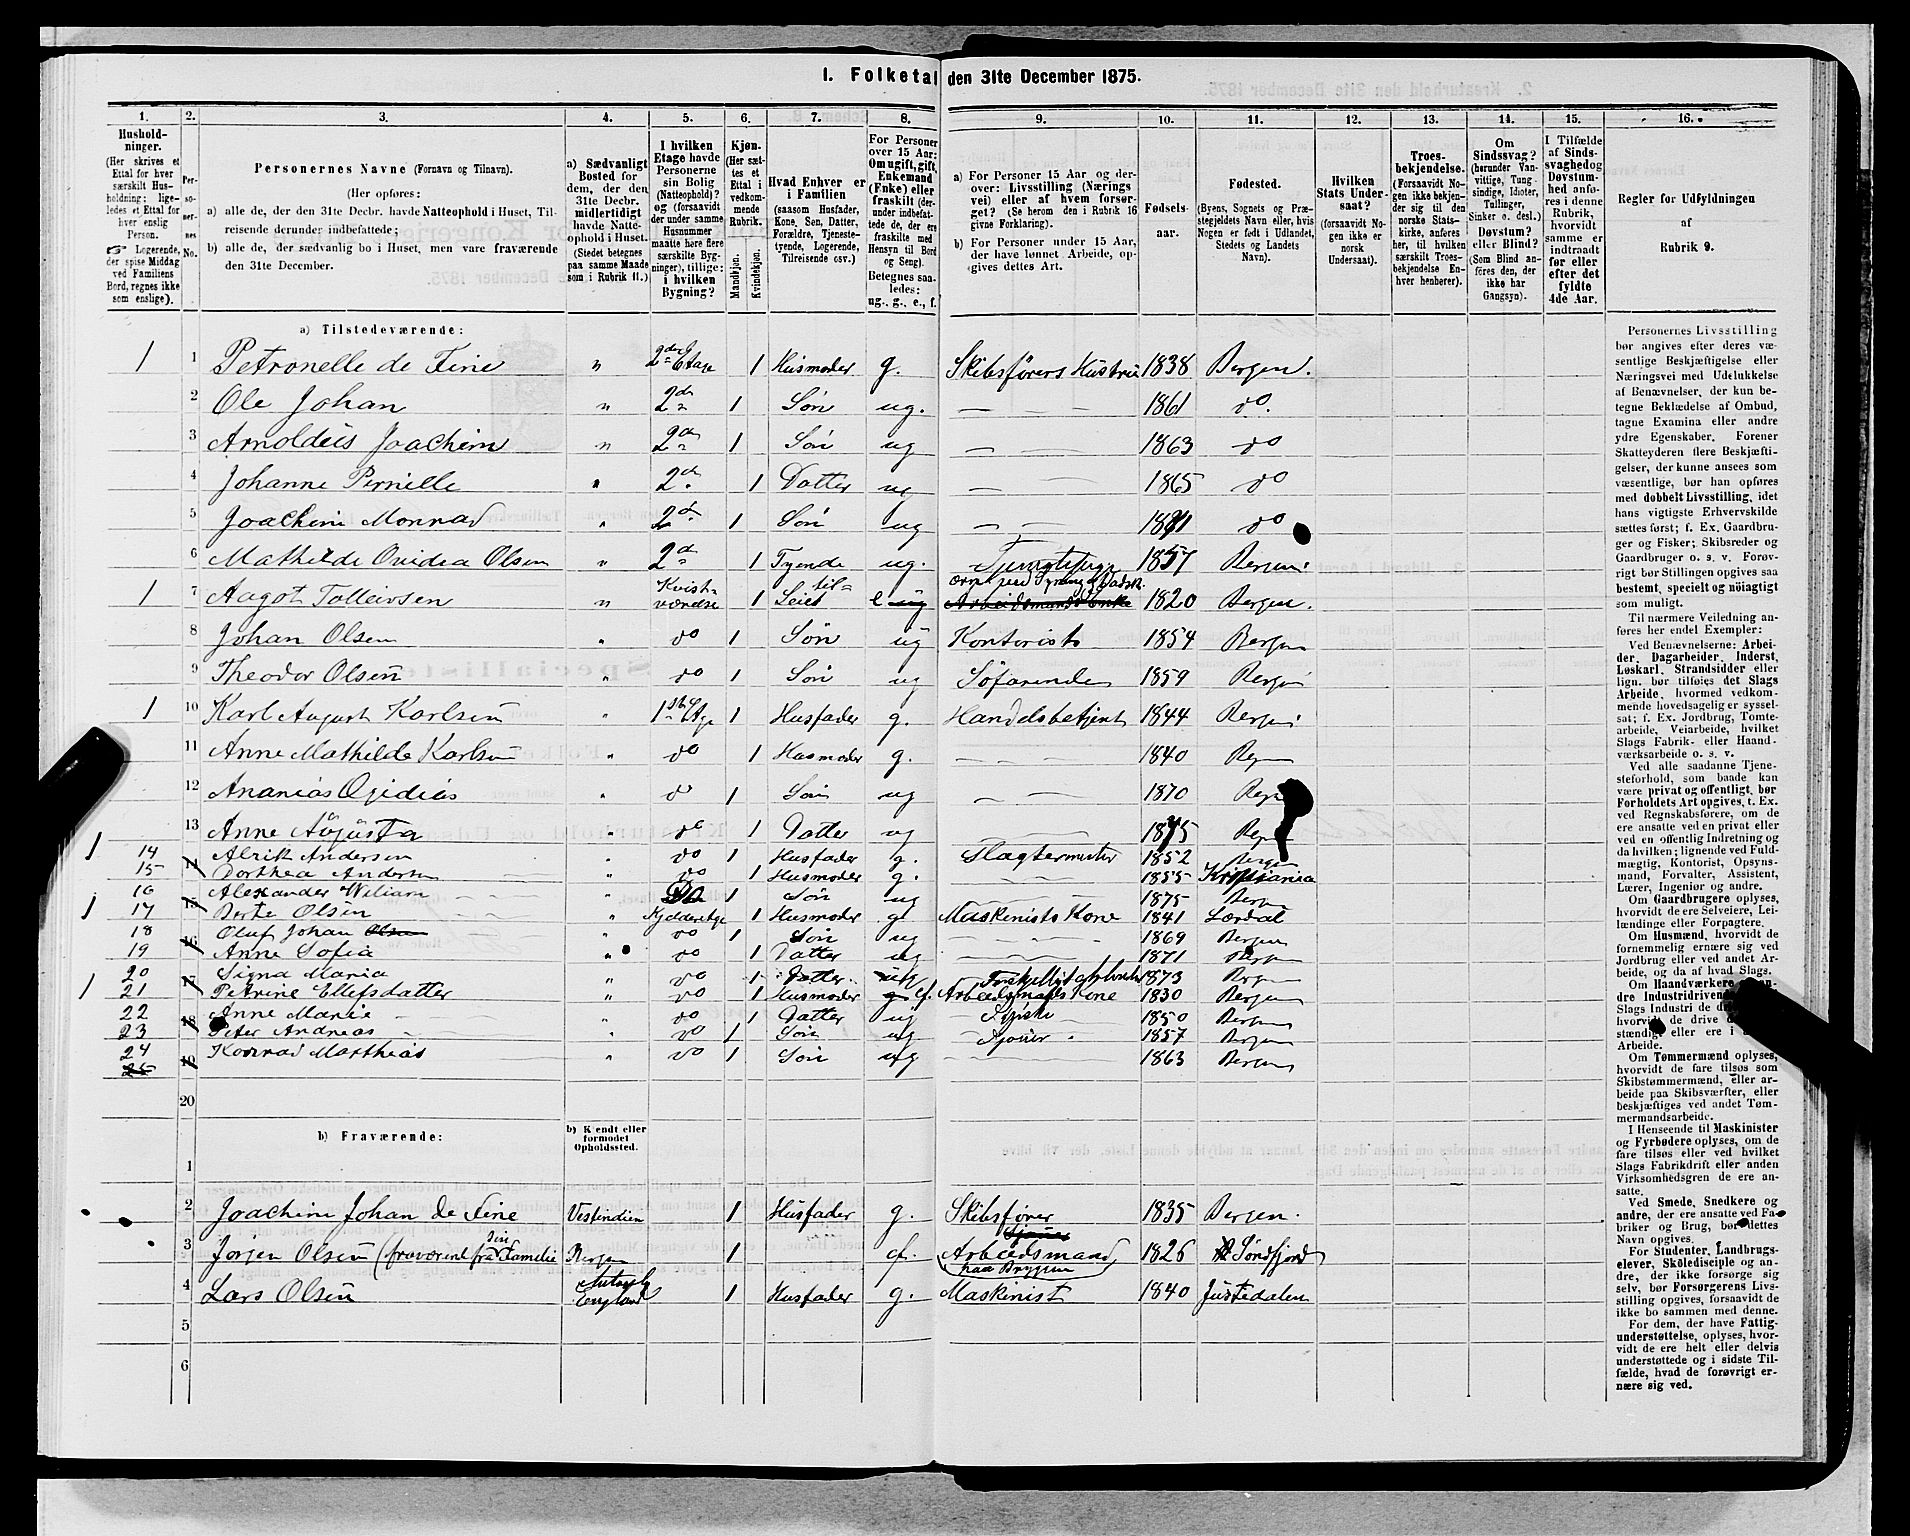 I. Folketal den 31te December 1875.
1. 2. 3. 4. 5. 6. 7. 8. 9. 10. 11. 12. 13. 14. 15. 16.
Hushold-
ninger.
(Her skrives et
Ettal for hver
særskilt Hus-
holdning; lige-
ledes et Ettal for
hver enslig
Person.
☞ Logerende,
der spise Middag
ved Familiens
Bord, regnes ikke
som enslige).
Per-
so-
ner-
nes
No.
Personernes Navne (Fornavn og Tilnavn).
(Her opføres:
a) alle de, der den 31te Decbr. havde Natteophold i Huset, Til-
reisende derunder indbefattede;
b) alle de, der sædvanlig bo i Huset, men vare fraværende
den 31te December.
a) Sædvanligt
Bosted for
dem, der den
31te Decbr.
midlertidigt
havde Natte-
ophold i Huset.
(Stedet betegnes
paa samme Maade
som i Rubrik 11.)
I hvilken
Etage havde
Personerne
sin Bolig
(Natteophold)?
og (forsaavidt
der under samme
Husnummer
maatte høre flere
særskilte Byg-
ninger), tillige:
i hvilken
Bygning?
Kjøn.
(Her sæt-
tes et
Ettal i
vedkom-
mende
Rubrik.
Mandkjøn.
Kvindekjøn.
Hvad Enhver er
i Familien
(saasom Husfader,
Kone, Søn, Datter,
Forældre, Tjeneste-
tyende, Logerende,
Tilreisende osv.)
For Personer
over 15 Aar:
Om ugift, gift,
Enkemand
(Enke) eller
fraskilt (der-
under indbefat-
tede de, der ere
fraskilte med
Hensyn til Bord
og Seng).
Betegnes saa-
ledes:
ug., g., e., f.
a) For Personer 15 Aar og der-
over: Livsstilling (Nærings
vei) eller af hvem forsør-
get? (Se herom den i Rubrik 16
givne Forklaring).
b) For Personer under 15 Aar,
der have lønnet Arbeide, op-
gives dettes Art.
Fødsels-
aar.
Fødested.
(Byens, Sognets og Præ-
stegjeldets Navn eller, hvis
Nogen er født i Udlandet,
Stedets og Landets
Navn).
Hvilken
Stats Under-
saat?
(forsaavidt No-
gen ikke er
norsk
Undersaat).
Troes-
bekjendelse.
(Forsaavidt No-
gen ikke bekjen-
der sig til den
norske Stats-
kirke, anføres
her, til hvilken
særskilt Troes-
bekjendelse En-
hver henhører).
Om
Sindssvag?
(herunder Van-
vittige, Tung-
sindige, Idioter,
Tullinger,
Sinker o. desl.)
Døvstum?
eller Blind?
(Som Blind an-
føres den, der
ikke har
Gangsyn).
I Tilfælde
af Sinds-
svaghedog
Døvstum-
hed anfø-
res i denne
Rubrik,
hvorvidt
samme er
indtraadt
før eller
efter det
fyldte
4de Aar.
Regler for Udfyldningen
af
Rubrik 9.
a) Tilstedeværende:
1 1 Petronelle de Fine " 2den Etage 1 Husmoder g. Skibsførers Hustru 1838 Bergen.
2 Ole Johan " 2d 1 Søn ug. — — — 1861 do.
3 Arnoldus Joachim " 2d 1 Søn ug — — — 1863 do
4 Johanne Pernille " 2d 1 Datter ug — — 1865 do
5 Joachim Monrad " 2d 1 Søn ug — — 1871 do
6 Mathilde Ovidea Olsen " 2d 1 Tyende ug. Tjenestepige 1857 Bergen.
1 7 Aagot Tolleivsen " Kvist-værelse 1 til-Leiet e ug Arbeidsmands Enke 1820 Bergen.
8 Johan Olsen " do 1 Søn ug Kontorist 1854 Bergen
9 Theodor Olsen " do 1 Søn ug Søfarende 1859 Bergen
1 10 Karl August Karlsen " 1ste Etge 1 Husfader g. Handelsbetjent 1844 Bergen.
11 Anne Mathilde Karlsen " do 1 Husmoder g. — — 1840 Bergen
12 Ananias Egidius " do 1 Søn ug — — 1870 Bergen
13 Anne Augusta " do 1 Datter ug 1875 Bergen
1 14 14 Alrik Andersen " do 1 Husfader g. Slagtermester 1852 Bergen
15 Dorthea Andersen " do 1 Husmoder g. 1855 Kristiania
16 Alexander Wiliam " Do 1 Søn ug 1875 Bergen
1 17 15 Berte Olsen " Kjelderetge 1 Husmoder g Maskinists Kone 1841 Lærdal
18 Oluf Johan Olsen " do 1 Søn ug 1869 Bergen
19 16 Anne Sofia " do 1 Datter ug 1871 Bergen
20 Signa Maria " do 1 Datter ug 1873 Bergen
1 21 17 Petrine Ellefsdatter " do 1 Husmoder g f. Arbeidsmands Kone 1830 Bergen
22 Anne Marie " do 1 Datter ug 1850 Bergen
23 18 Peter Andreas " do 1 Søn ug Sjouer 1857 Bergen
24 Konrad Matthias " do 1 Søn ug 1863 Bergen
25 19
20
b) Fraværende:
b) Kjendt eller
formodet
Opholdssted.
1
2 Joachim Johan de Fine Vestindien 1 Husfader g. Skibsfører 1835 Bergen.
3 Jørgen Olsen (fraværende fra sin Familie Bergen 1 f. Sjouer Arbeidsmand paa Bryggen 1826 Søndfjord
4 Lars Olsen England 1 Husfader g. Maskinist 1840 Justedalen
5
6
Personernes Livsstilling
bør angives efter deres væ-
sentlige Beskjæftigelse eller
Næringsvei med Udelukkelse
af Benævnelser, der kun be-
tegne Beklædelse af Ombud,
tagne Examina eller andre
ydre Egenskaber. Forener
Skatteyderen flere Beskjæfti-
gelser, der kunne ansees som
væsentlige, bør han opføres
med dobbelt Livsstilling, idet
hans vigtigste Erhvervskilde
sættes først; f. Ex. Gaardbru-
ger og Fisker; Skibsreder og
Gaardbruger o. s. v. Forøv-
rigt bør Stillingen opgives saa
bestemt, specielt og nöiagtigt
som muligt.
Til nærmere Veiledning an-
føres her endel Exempler:
Ved Benævnelserne: Arbei-
der, Dagarbeider, Inderst,
Løskarl, Strandsidder eller
lign. bør tilføies det Slags
Arbeide, hvormed vedkom-
mende hovedsagelig er syssel-
sat; f. Ex. Jordbrug, Tomte-
arbeide, Veiarbeide, hvilket
Slags Fabrik- eller Haand-
værksarbeide o. s. v.
Ved alle saadanne Tjene-
steforhold, som baade kan
være privat og offentligt, bør
Forholdets Art opgives, t. Ex.
ved Regnskabsførere, om de
ere ansatte ved en privat eller
ved en offentlig Indretning og
da hvilken; lignende ved Fuld-
mægtig, Kontorist, Opsyns-
mand, Forvalter, Assistent,
Lærer, Ingeniør og andre.
Om Gaardbrugere oplyses,
hvorvidt de ere Selveiere, Lei-
lændinge eller Forpagtere.
Om Husmænd, hvorvidt de
fornemmelig ernære sig ved
Jordbrug eller ved andet Ar-
beide, og da af hvad Slags.
Om Haandværkere og an-
dre Industridrivende
Slags Industri de
hvorvidt de drive
stændig eller ere i
Arbeide.
Om Tømmermænd oplyses,
hvorvidt de fare tilsøs som
Skibstømmermænd, eller ar-
beide paa Skibsværfter, eller
beskjæftiges ved andet Tøm-
mermandsarbeide.
I Henseende til Maskinister
og Fyrbødere oplyses, om de
fare tilsøs eller ved hvilket
Slags Fabrikdrift eller anden
Virksomhedsgren de ere an-
satte.
Ved Smede, Snedkere og
andre, der ere ansatte ved Fa-
briker og Brug, bør dettes
Navn opgives.
For Studenter, Landbrugs-
elever, Skoledisciple og an-
dre, der ikke forsørge sig
selv, bør Forsørgerens Livs-
stilling opgives, forsaavidt de
ikke bo sammen med denne.
For dem, der have Fattig-
understøttelse, oplyses, hvor-
vidt de ere helt eller delvis
understøttede og i sidste Til-
fælde, hvad de forøvrigt er-
nære sig ved.